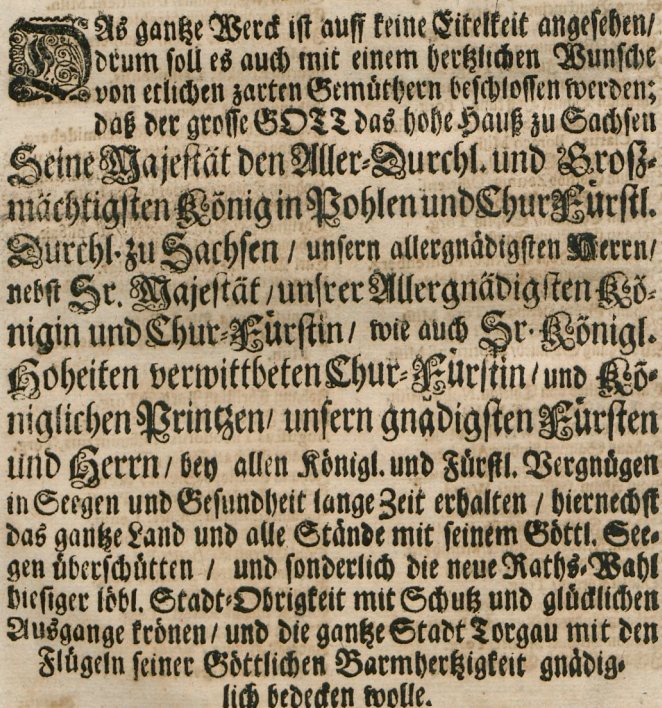 DAs gantze Werck ist auff keine Eitelkeit angesehen/
drum soll es auch mit einem hertzlichen Wunsche
von etlichen zarten Gemüthern beschlossen werden;
daß der grosse GOTT das hohe Hauß zu Sachsen
Seine Majestät den Aller-Durchl. und Groß-
mächtigsten König in Pohlen und Chur Fürstl.
Durchl. zu Sachsen / unsern allergnädigsten Herrn/
nebst Sr. Majestät / unsrer Allergnädigsten Kö-
nigin und Chur-Fürstin / wie auch Sr. Königl.
Hoheiten verwittbeten Chur-Fürstin / und Kö-
niglichen Printzen / unsern gnädigsten Fürsten
und Herrn / bey allen Königl. und Fürstl. Vergnügen
in Seegen und Gesundheit lange Zeit erhalten / hiernechst
das gantze Land und alle Stände mit seinem Göttl. See-
gen überschütten / und sonderlich die neue Raths-Wahl
hiesiger löbl. Stadt-Obrigkeit mit Schutz und glücklichen
Ausgange krönen / und die gantze Stadt Torgau mit den
Flügeln seiner Göttlichen Barmhertzigkeit gnädig-
lich bedecken wolle.